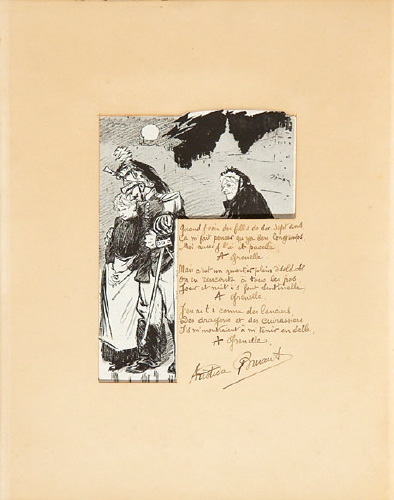 Quand j'vois des fill's de dix-sept ans
Ça m'fait penser qu'ya ben longtemps,
Moi aussi j'l'ai été pucelle
A Grenelle
Mais c'est un quartier plein d'soldats
On en rencontre à tous les pas
Jour et nuit i's font sentinelle
A Grenelle
J'en ai t'i' connu des lanciers
Des dragons et des cuirassiers
I's m'montraient à m'tenir en selle
A Grenelle.
Aristide Bruant